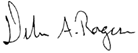 Debra A. Rogers